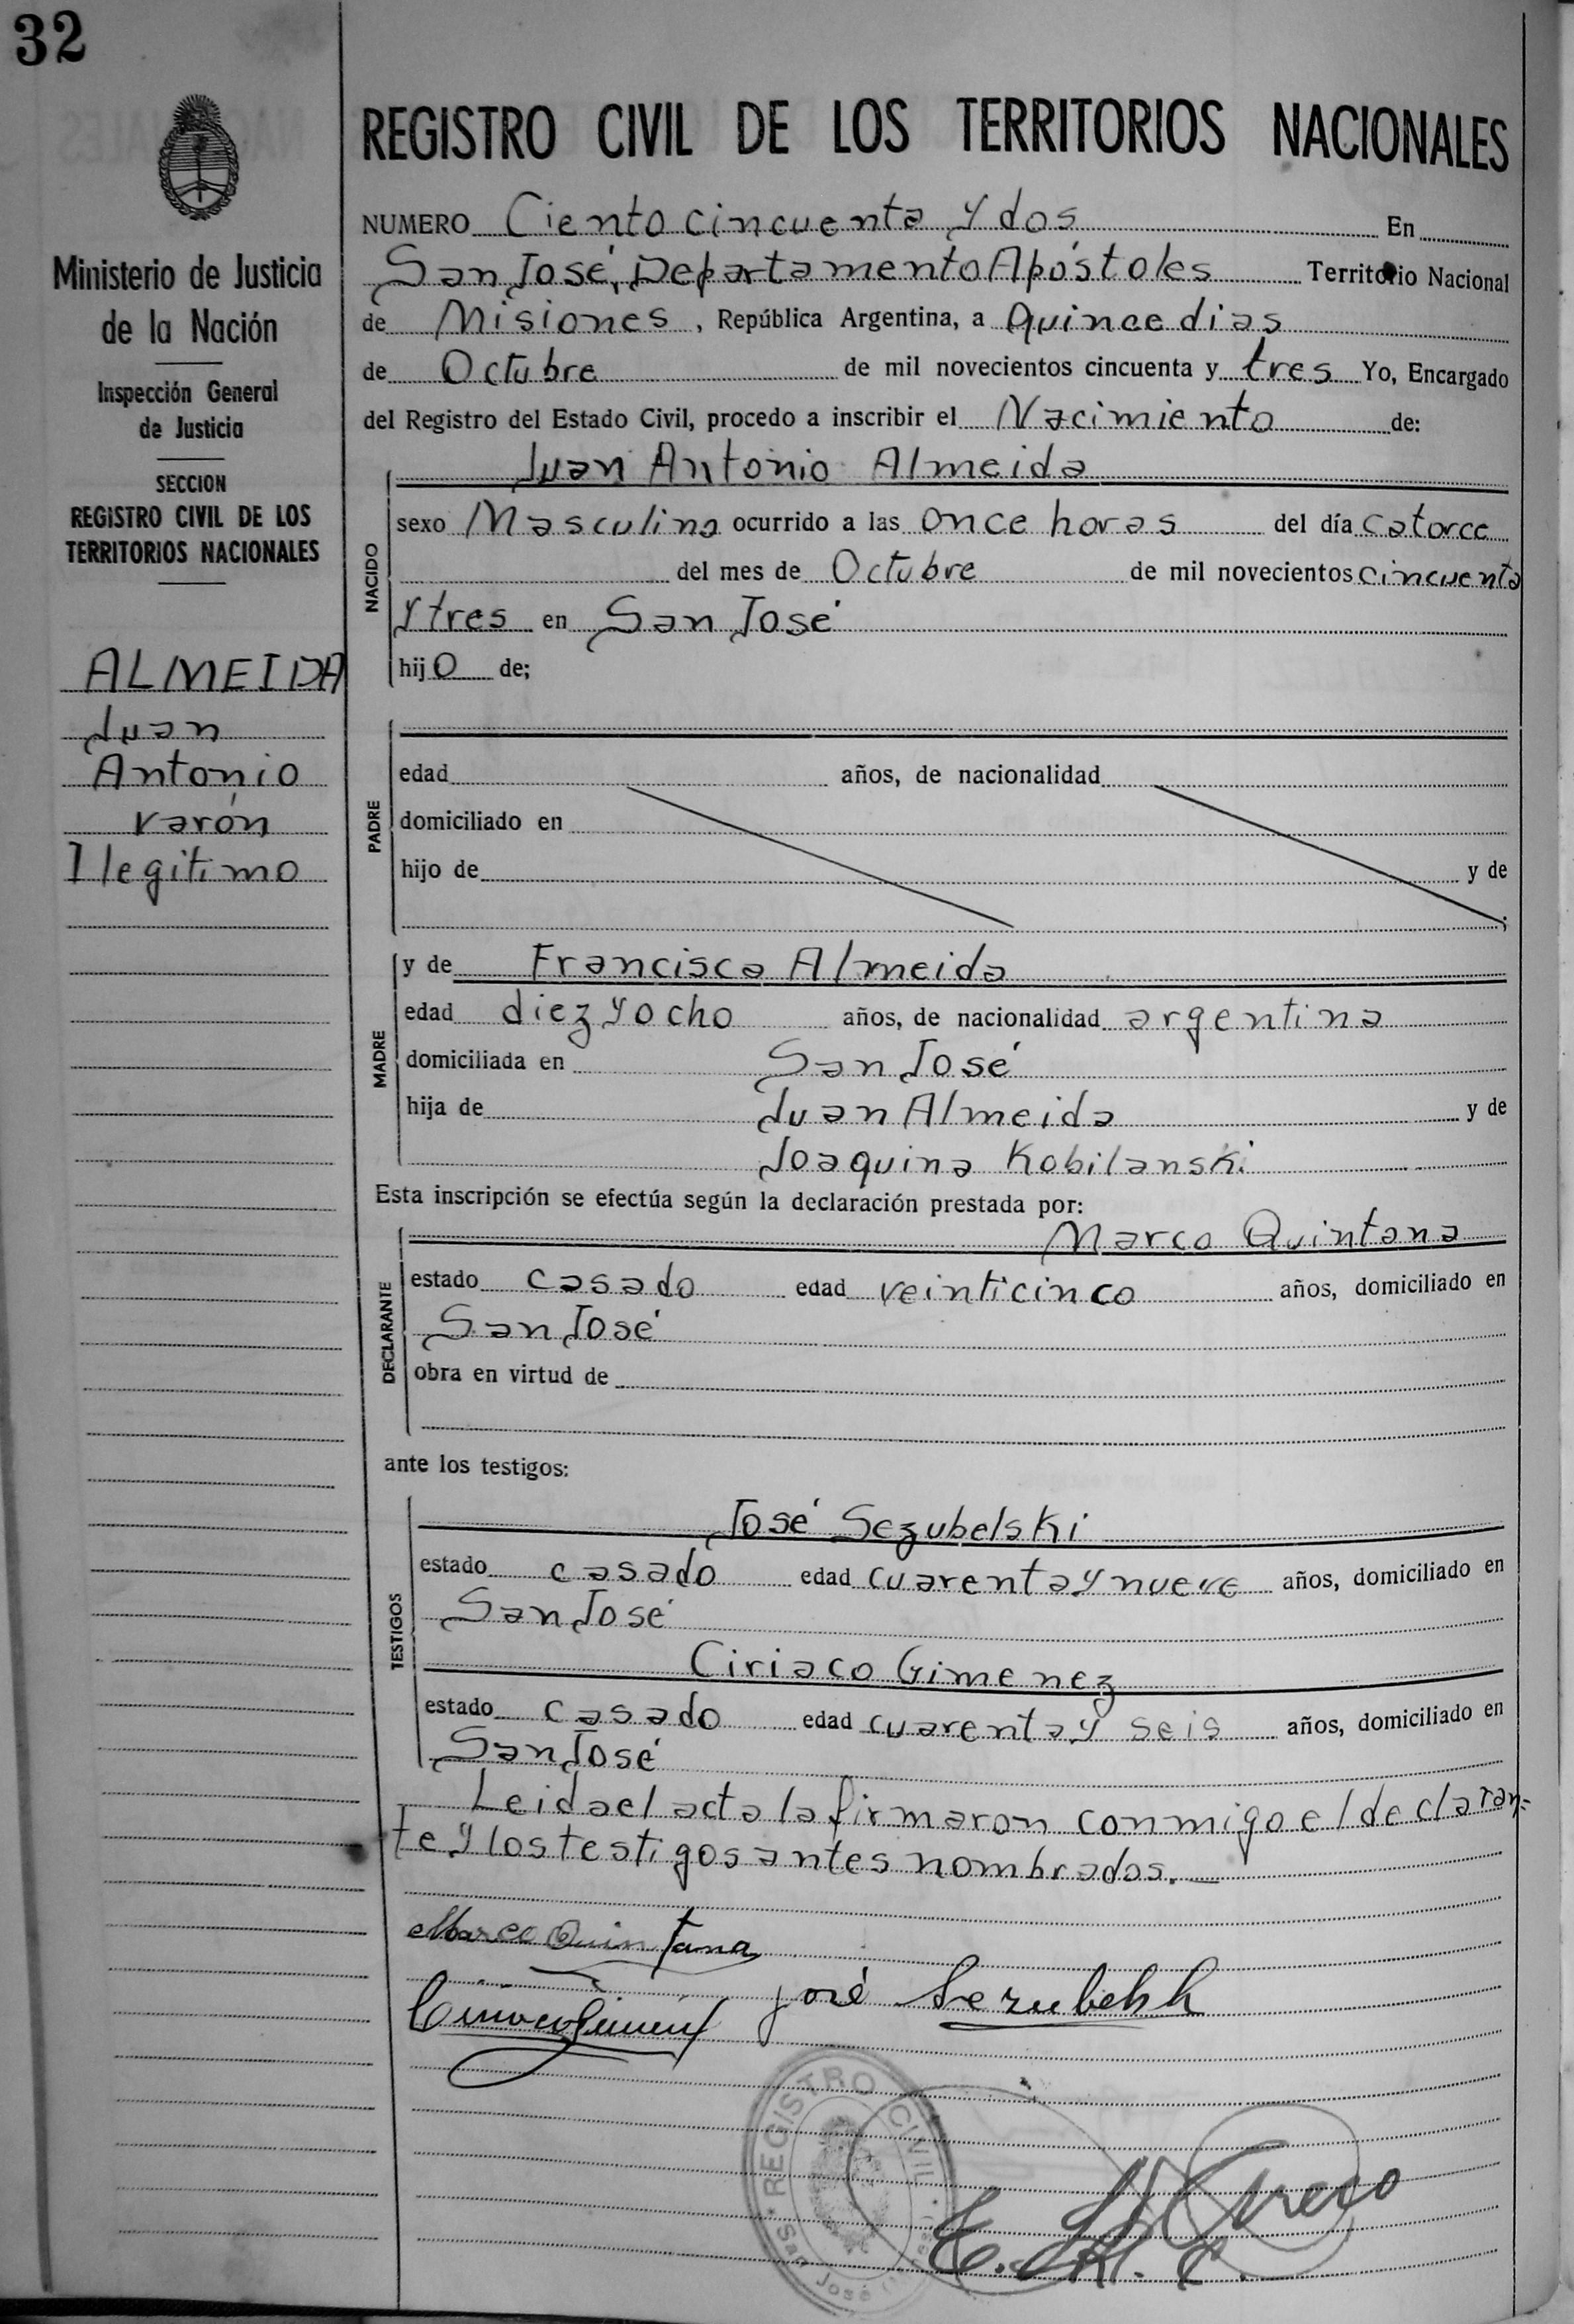 32
Ministerio de Justicia
de la Nación
Inspección General
de Justicia
SECCION
REGISTRO CIVIL DE LOS
TERRITORIOS NACIONALES
ALMEIDA
Juan
Antonio
varón
Ilegitimo
REGISTRO CIVIL DE LOS TERRITORIOS NACIONALES
NUMERO Ciento cincuenta y dos En
San José, Departamento Apóstoles Territorio Nacional
de Misiones, República Argentina, a quince dias
de Octubre de mil novecientos cincuenta y tres Yo, Encargado
del Registro del Estado Civil, procedo a inscribir el Nacimiento de:
NACIDO
Juan Antonio Almeida
sexo Masculino ocurrido a las once horas del día catorce
del mes de Octubre de mil novecientos cincuenta
y tres en San José
hijo de;
PADRE
edad años, de nacionalidad
domiciliado en
hijo de y de
;
MADRE
y de Francisca Almeida
edad diez y ocho años, de nacionalidad argentina
domiciliada en San José
hija de Juan Almeida y de
Joaquina Kobilanski
Esta inscripción se efectúa según la declaración prestada por:
DECLARANTE
Marco Quintana
estado casado edad veinticinco años, domiciliado en
San José
obra en virtud de
ante los testigos:
TESTIGOS
José Sezubelski
estado casado edad cuarenta y nueve años, domiciliado en
San José
Ciriaco Gimenez
estado casado edad cuarenta y seis años, domiciliado en
San José
Leida el acta la firmaron conmigo el declaran=
te y los testigos antes nombrados.
Marco Quintana
José Sezubelski
Ciriaco Gimenez
REGISTRO CIVIL
San José